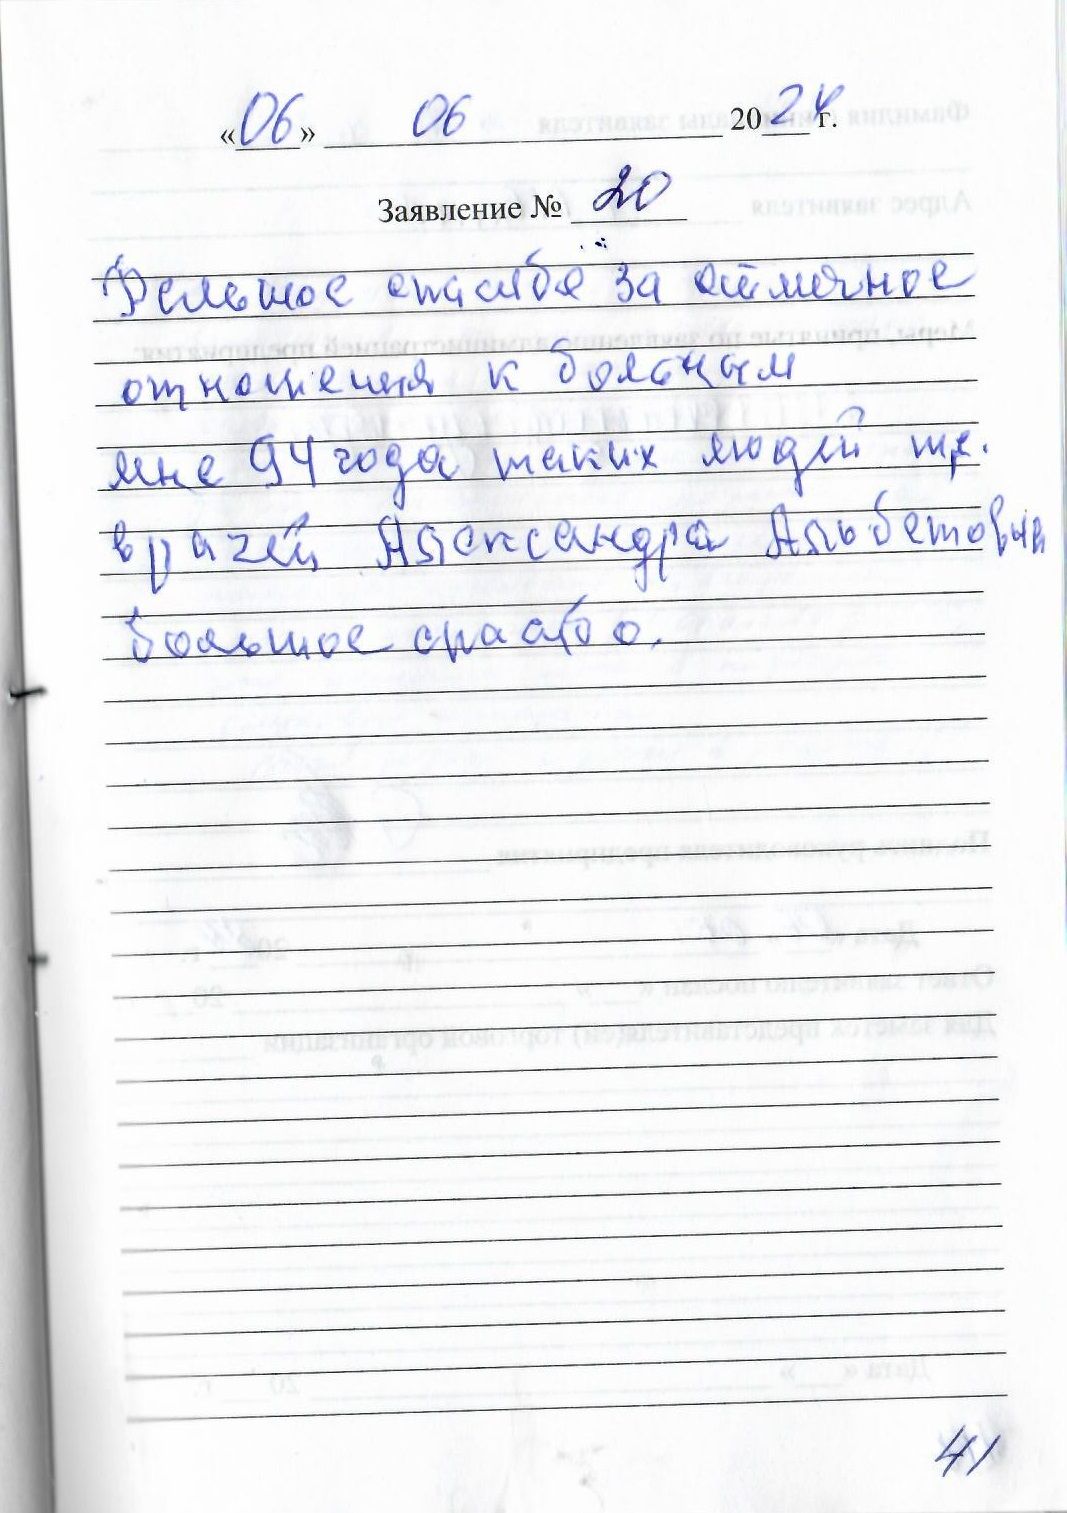 «06» 06 2024 г.
Заявление № 20
спасибо за отличное
отношения к больным
мне 94 года таких людей
врачей Александра Альбетовна
большое спасибо.
41